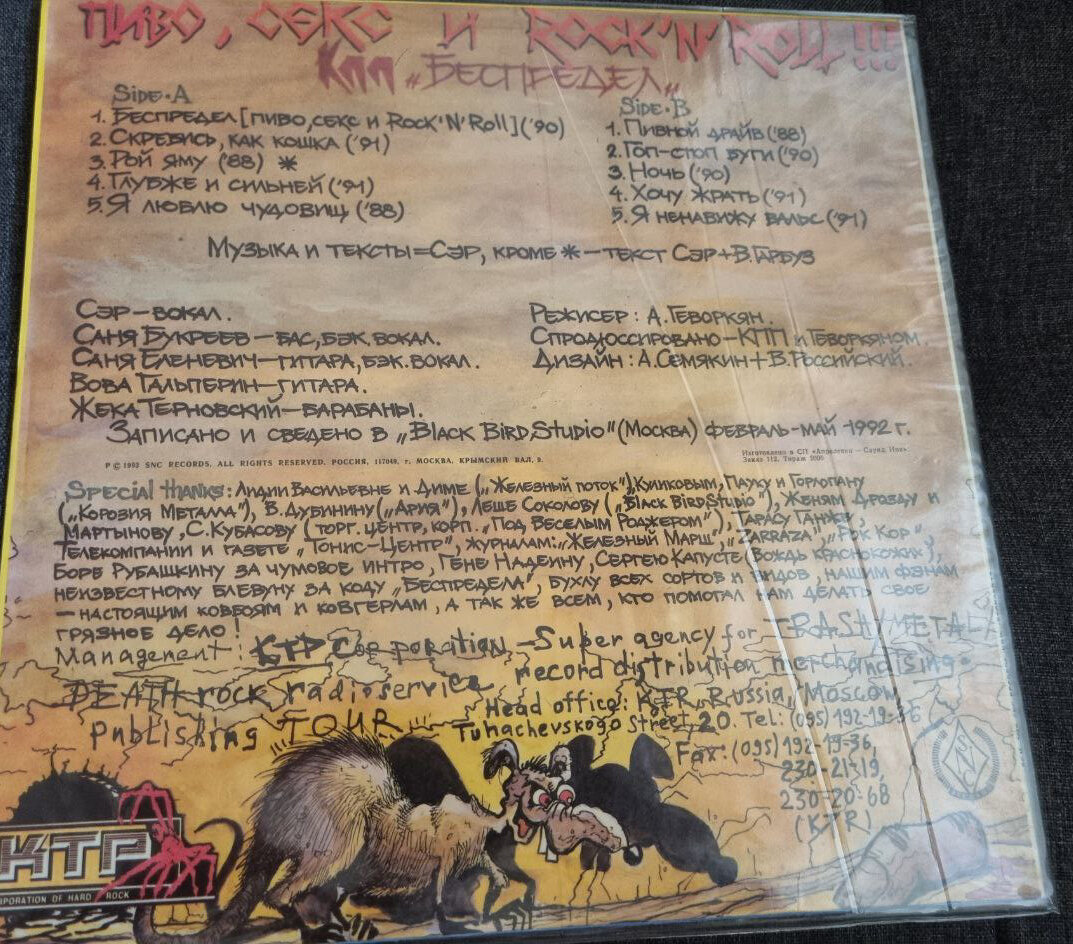 ПИВО, СЕКС И ROCK'N'ROLL!!!
КПП „БЕСПРЕДЕЛ„
SIDE•A
1. БЕСПРЕДЕЛ [ПИВО, СЕКС И ROCK'N'ROLL] ('90)
2. СКРЕБИСЬ, КАК КОШКА ('91)
3. РОЙ ЯМУ ('88) *
4. ГЛУБЖЕ И СИЛЬНЕЙ ('91)
5. Я ЛЮБЛЮ ЧУДОВИЩ ('88)
SIDE•B
1. ПИВНОЙ ДРАЙВ ('88)
2. ГОП-СТОП БУГИ ('90)
3. НОЧЬ ('90)
4. ХОЧУ ЖРАТЬ ('91)
5. Я НЕНАВИЖУ ВАЛЬС ('91)
МУЗЫКА И ТЕКСТЫ = СЭР, КРОМЕ * — ТЕКСТ СЭР + В. ГАРБУЗ
СЭР — ВОКАЛ.
САНЯ БУКРЕЕВ — БАС, БЭК. ВОКАЛ.
САНЯ ЕЛЕНЕВИЧ — ГИТАРА, БЭК. ВОКАЛ.
ВОВА ГАЛЬПЕРИН — ГИТАРА.
ЖЕКА ТЕРНОВСКИЙ — БАРАБАНЫ.
РЕЖИСЕР: А. ГЕВОРКЯН.
СПРОДЮССИРОВАНО — КПП И ГЕВОРКЯНОМ.
ДИЗАЙН: А. СЕМЯКИН + В. РОССИЙСКИЙ.
ЗАПИСАНО И СВЕДЕНО В „BLACK BIRD, STUDIO" (МОСКВА) ФЕВРАЛЬ-МАЙ 1992 Г.
P © 1993 SNC RECORDS. ALL RIGHTS RESERVED. РОССИЯ, 117049, г. МОСКВА, КРЫМСКИЙ ВАЛ, 9.
Изготовлено в СП «Апрелевка - Саунд Инк»
Заказ 112. Тираж
SPECIAL THANKS: ЛИДИИ ВАСИЛЬЕВНЕ И ДИМЕ („ЖЕЛЕЗНЫЙ ПОТОК"), КУЛИКОВЫМ, ПАУКУ И ГОРЛОПАНУ
(„КОРОЗИЯ МЕТАЛЛА"), В. ДУБИНИНУ („АРИЯ"), ЛЕШЕ СОКОЛОВУ („BLACK BIRD, STUDIO"), ЖЕНЯМ ДРОЗДУ И
МАРТЫНОВУ, С. КУБАСОВУ (ТОРГ. ЦЕНТР, КОРП. „ПОД ВЕСЕЛЫМ РОДЖЕРОМ"), ТАРАСУ ГАНЖЕ,
ТЕЛЕКОМПАНИИ И ГАЗЕТЕ „ТОНИС-ЦЕНТР", ЖУРНАЛАМ: „ЖЕЛЕЗНЫЙ МАРШ", „ZARRAZA", „РОК КОР"
БОРЕ РУБАШКИНУ ЗА ЧУМОВОЕ ИНТРО, ГЕНЕ НАДЕИНУ, СЕРГЕЮ КАПУСТЕ (ВОЖДЬ КРАСНОКОЖИХ),
НЕИЗВЕСТНОМУ БЛЕВУНУ ЗА КОДУ „БЕСПРЕДЕЛА", БУХЛУ ВСЕХ СОРТОВ И ВИДОВ, НАШИМ ФЭНАМ
— НАСТОЯЩИМ КОВБОЯМ И КОВГЕРЛАМ, А ТАК ЖЕ ВСЕМ, КТО ПОМОГАЛ НАМ ДЕЛАТЬ СВОЕ
ГРЯЗНОЕ ДЕЛО!
Management: KTP Corporation — Super agency for TRASH/METAL/
DEATH rock radioservice, record distribution merchandising
publishing TOUR
Head office: KTR, Russia, Moscow,
Tuhachevskogo Street, 20. Tel: (095) 192-19-36
Fax: (095) 192-19-36,
230-21-19,
230-20-68
(KTR)
SNC
КТР
CORPORATION OF HARD ROCK